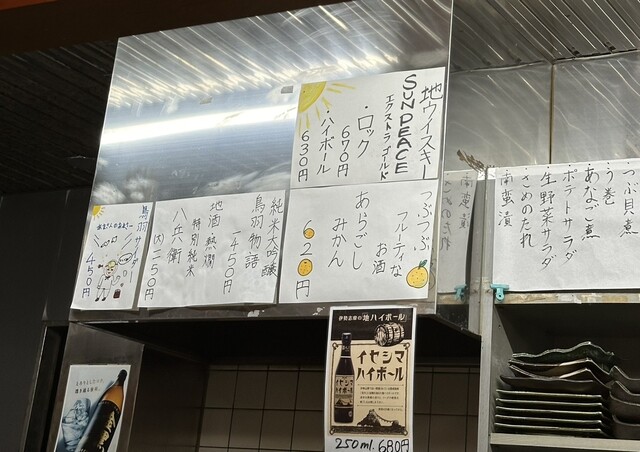 地ウイスキー
SUNPEACE
エクストラゴールド
・ロック
670円
・ハイボール
630円
つぶつぶ
フルーティな
お酒
あらごし
みかん
620円
純米大吟醸
鳥羽物語
一450円
地酒 熱燗
特別純米
八兵衛
鳥羽サイダー
450円
つぶ貝煮
う巻
あなご煮
ポテトサラダ
生野菜サラダ
さめのたれ
南蛮漬
伊勢志摩の地ハイボール
イセシマ
ハイボール
250ml. 680円